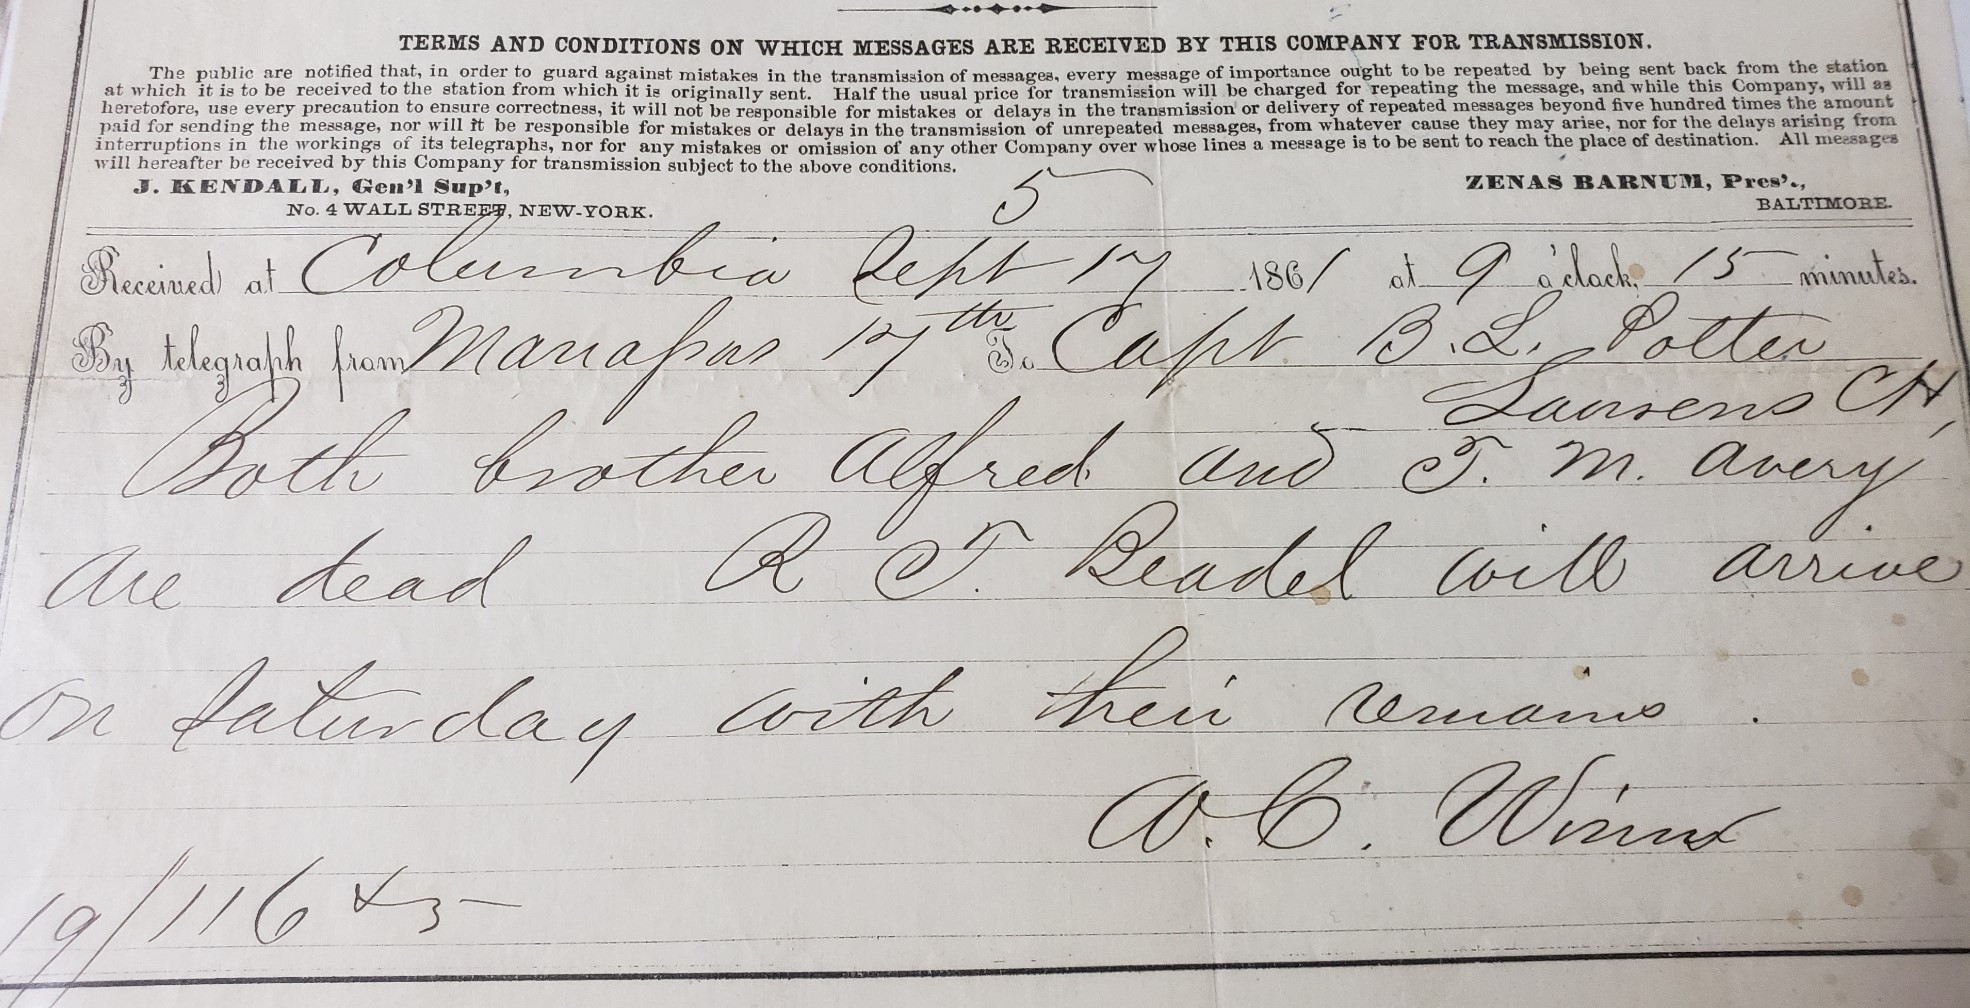 TERMS AND CONDITIONS ON WHICH MESSAGES ARE RECEIVED BY THIS COMPANY FOR TRANSMISSION.
The public are notified that, in order to guard against mistakes in the transmission of messages, every message of importance ought to be repeated by being sent back from the station
at which it is to be received to the station from which it is originally sent. Half the usual price for transmission will be charged for repeating the message, and while this Company, will as
heretofore, use every precaution to ensure correctness, it will not be responsible for mistakes or delays in the transmission or delivery of repeated messages beyond five hundred times the amount
paid for sending the message, nor will it be responsible for mistakes or delays in the transmission of unrepeated messages, from whatever cause they may arise, nor for the delays arising from
interruptions in the workings of its telegraphs, nor for any mistakes or omission of any other Company over whose lines a message is to be sent to reach the place of destination. All messages
will hereafter be received by this Company for transmission subject to the above conditions.
J. KENDALL, Gen'l Sup't, ZENAS BARNUM, Pres'.,
No. 4 WALL STREET, NEW-YORK. 5 BALTIMORE.
Received at Columbia Sept 17 1861 at 9 o'clock, 15 minutes.
By telegraph from Manassas 17th To Capt B. L. Potter
Laurens CH,
Both brother Alfred and T. M. Avery
are dead R T. Beadel will arrive
on Saturday with their remains.
W. C. Winn
19/116